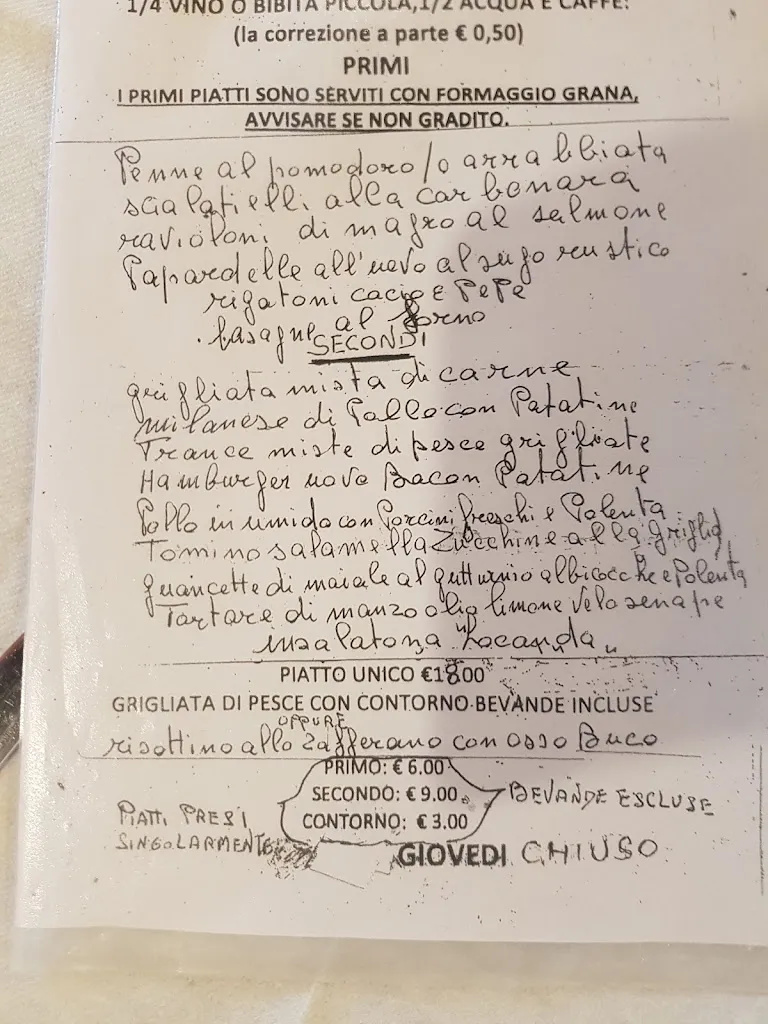 1/4 VINO O BIBITA PICCOLA,1/2 ACQUA E CAFFE.
(la correzione a parte € 0,50)
PRIMI
I PRIMI PIATTI SONO SERVITI CON FORMAGGIO GRANA,
AVVISARE SE NON GRADITO.
Penne al pomodoro/o arrabbiata
scialatielli alla carbonara
ravioloni di magro al salmone
Papardelle all'uovo al sugo rustico
rigatoni cacio E PePe
lasagne al forno
SECONDI
grigliata mista di carne
milanese di Pollo con Patatine
Trance miste di pesce grigliate
Hamburger uovo Bacon Patatine
Pollo in umido con Porcini freschi e Polenta
Tomino salamella Zucchine alla griglia
guancette di maiale al gutturnio albicocche e Polenta
Tartare di manzo olio limone velo senape
insalatona "Locanda"
PIATTO UNICO €18.00
GRIGLIATA DI PESCE CON CONTORNO-BEVANDE INCLUSE
OPPURE
risottino allo Zafferano con osso Buco
PRIMO: € 6.00
SECONDO: € 9.00
CONTORNO: € 3.00
BEVANDE ESCLUSE
PIATTI PRESI
SINGOLARMENTE
GIOVEDI CHIUSO